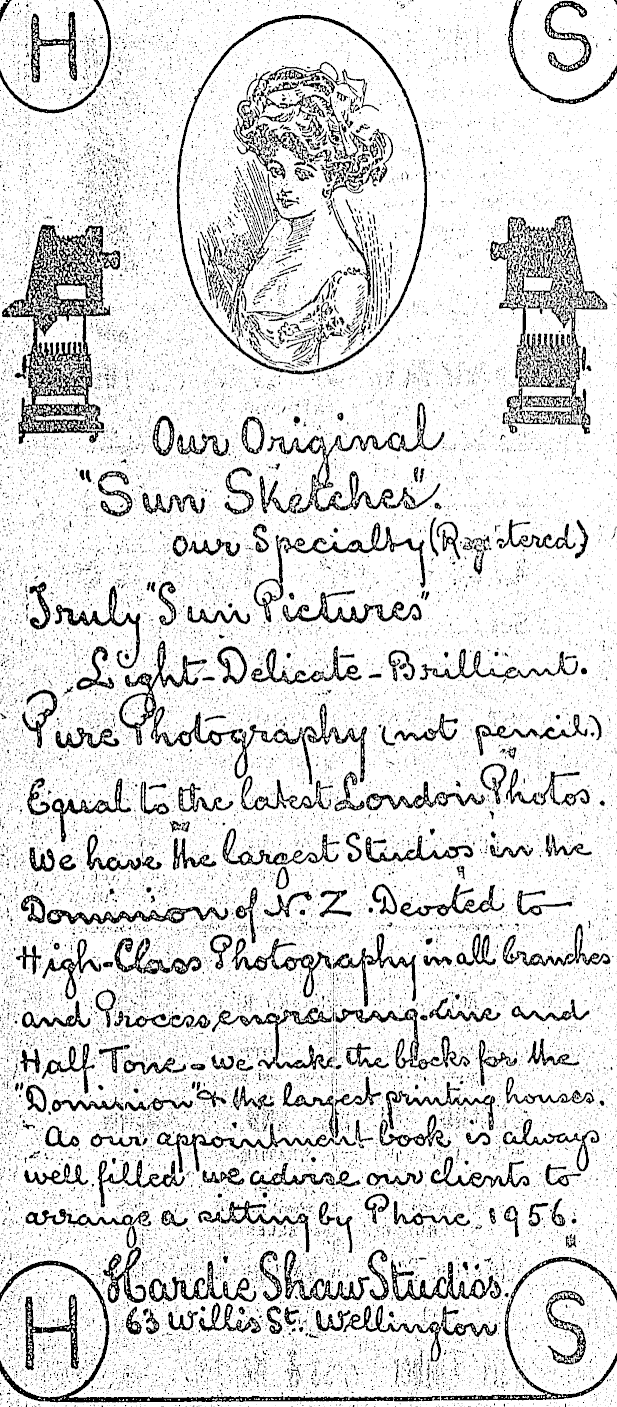 H S
Our Original
"Sun Sketches".
our Specialty (Registered)
Truly "Sun Pictures"
Light-Delicate-Brilliant.
Pure Photography (not pencil.)
Equal to the latest London Photos.
We have the largest Studios in the
Dominion of N. Z. Devoted to
High-Class Photography in all branches
and Process engraving-Line and
Half Tone - we make the blocks for the
"Dominion" & the largest printing houses.
As our appointment book is always
well filled we advise our clients to
arrange a sitting by Phone 1956.
Hardie Shaw Studios.
63 Willis St. Wellington
H S